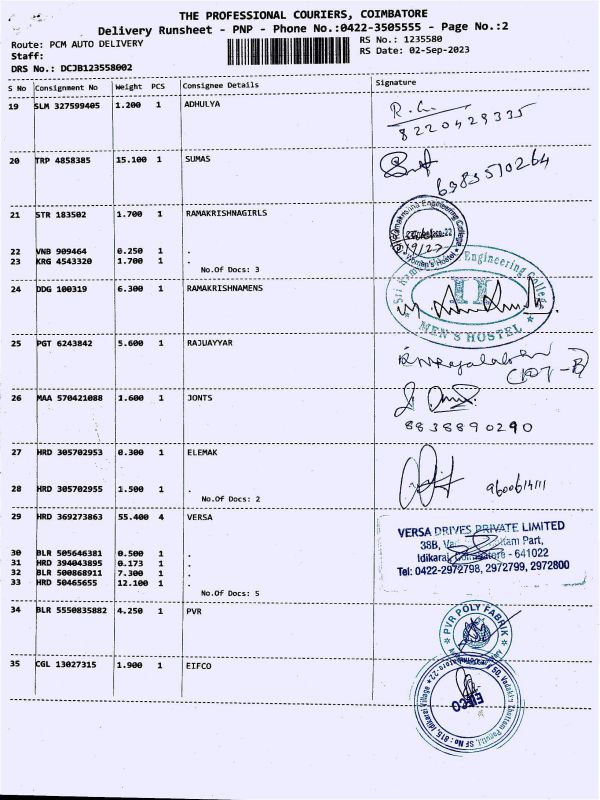 THE PROFESSIONAL COURIERS, COIMBATORE
Delivery Runsheet - PNP - Phone No.:0422-3505555 - Page No.:2
Route: PCM AUTO DELIVERY
RS No.: 1235580
Staff:
RS Date: 02-Sep-2023
DRS No.: DCJB123558002
S No Consignment No Weight PCS Consignee Details Signature
19 SLM 327599405 1.200 1 ADHULYA
8220429335
20 TRP 4858385 15.100 1 SUMAS
6383510264
21 STR 183502 1.700 1 RAMAKRISHNAGIRLS
22 VNB 909464 0.250 1 .
23 KRG 4543320 1.700 1 .
No.Of Docs: 3
Women's Hostel
24 DDG 100319 6.300 1 RAMAKRISHNAMENS
Engineering College
MEN'S HOSTEL
25 PGT 6243842 5.600 1 RAJUAYYAR
26 MAA 570421088 1.600 1 JONTS
8838890290
27 HRD 305702953 0.300 1 ELEMAK
28 HRD 305702955 1.500 1 .
No.Of Docs: 2
9600614111
29 HRD 369273863 55.400 4 VERSA
VERSA DRIVES PRIVATE LIMITED
38B,
Idikarai, Coimbatore - 641022
Tel: 0422-2972798, 2972799, 2972800
30 BLR 505646381 0.500 1 .
31 HRD 394043895 0.173 1 .
32 BLR 500868911 7.300 1 .
33 HRD 50465655 12.100 1 .
No.Of Docs: 5
34 BLR 5550835882 4.250 1 PVR
PVR POLY FABRIK
35 CGL 13027315 1.900 1 EIFCO
EIFCO